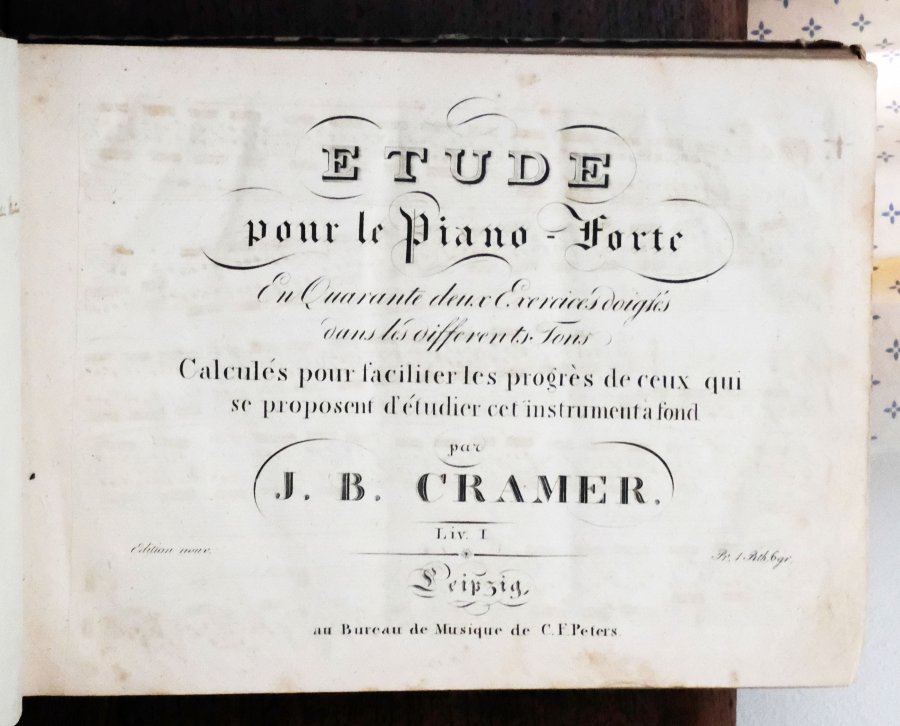 ETUDE
pour le Piano-Forte
En Quarante deux Exercices doigtés
dans les différents Tons
Calculés pour faciliter les progrès de ceux qui
se proposent d'étudier cet instrument à fond
par
J. B. CRAMER.
Liv. I
Edition nouv.
Pr. 1 Rth. 6 gr.
Leipzig,
au Bureau de Musique de C. F. Peters.